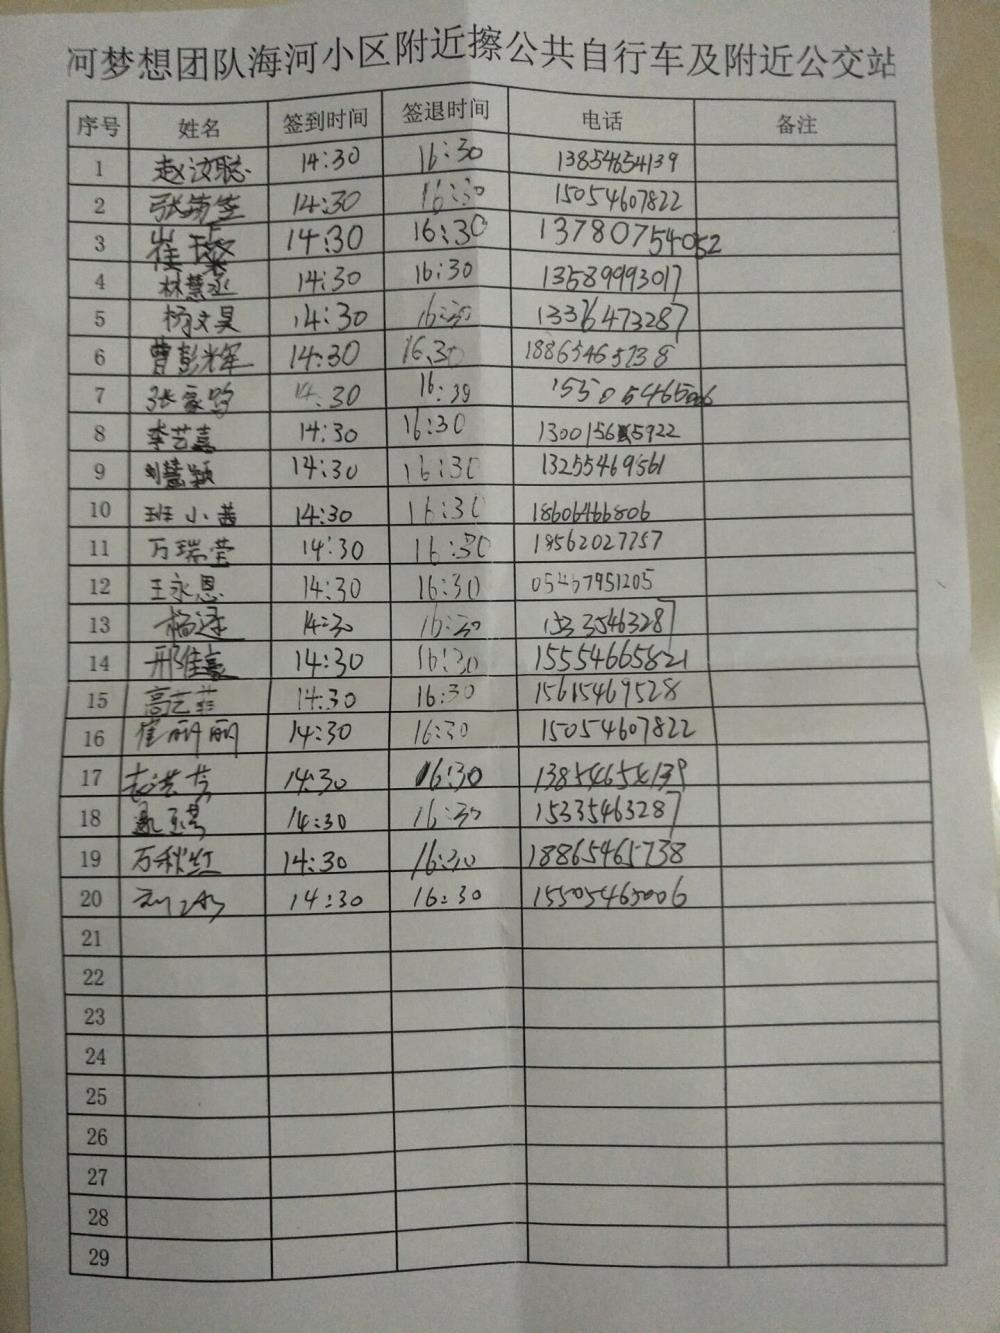 河梦想团队海河小区附近擦公共自行车及附近公交站
序号 姓名 签到时间 签退时间 电话 备注
1 赵汶聪 14:30 16:30 13854654139
2 张 14:30 16:30 15054607822
3 崔璨 14:30 16:30 13780754052
4 林慧丞 14:30 16:30 13589993017
5 杨文昊 14:30 16:30 13376473287
6 曹彭光辉 14:30 16.30 18865465738
7 张家鸣 14:30 16:39 15505465006
8 李艺嘉 14:30 16:30 1300156 5922
9 刘慧颖 14:30 16:30 13255469561
10 班小茜 14:30 16:30 18606466806
11 万瑞莹 14:30 16:30 18562027757
12 王永恩 14:30 16:30 05467951205
13 杨 14:30 16:30 15335463287
14 邢佳豪 14:30 16:30 15554665821
15 高艺菲 14:30 16:30 15615469528
16 崔丽丽 14:30 16:30 15054607822
17 14:30 16:30 13854654139
18 14:30 16:30 15335463287
19 万秋红 14:30 16:30 18865465738
20 14:30 16:30 15505465006
21
22
23
24
25
26
27
28
29